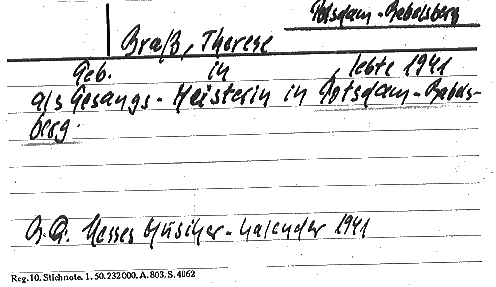 Potsdam-Babelsberg
Braß, Therese
Geb. in , lebte 1941
als Gesangs-Meisterin in Potsdam-Babels-
berg.
Hesses Musiker-Kalender 1941
Reg. 10. Stichnote. 1. 50. 232000. A. 803. S. 4062